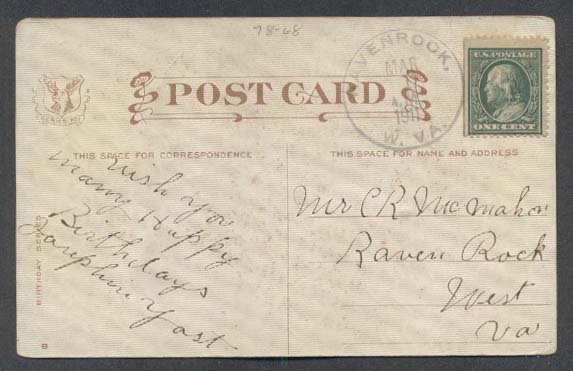 78-68
RAVENROCK,
MAR
1911
W. VA.
U.S. POSTAGE
ONE CENT
POST CARD
THIS SPACE FOR CORRESPONDENCE
THIS SPACE FOR NAME AND ADDRESS
wish you
many Happy
Birthdays
Josephine Yost
Mr CR McMahon
Raven Rock
West
Va
BIRTHDAY SERIES
B